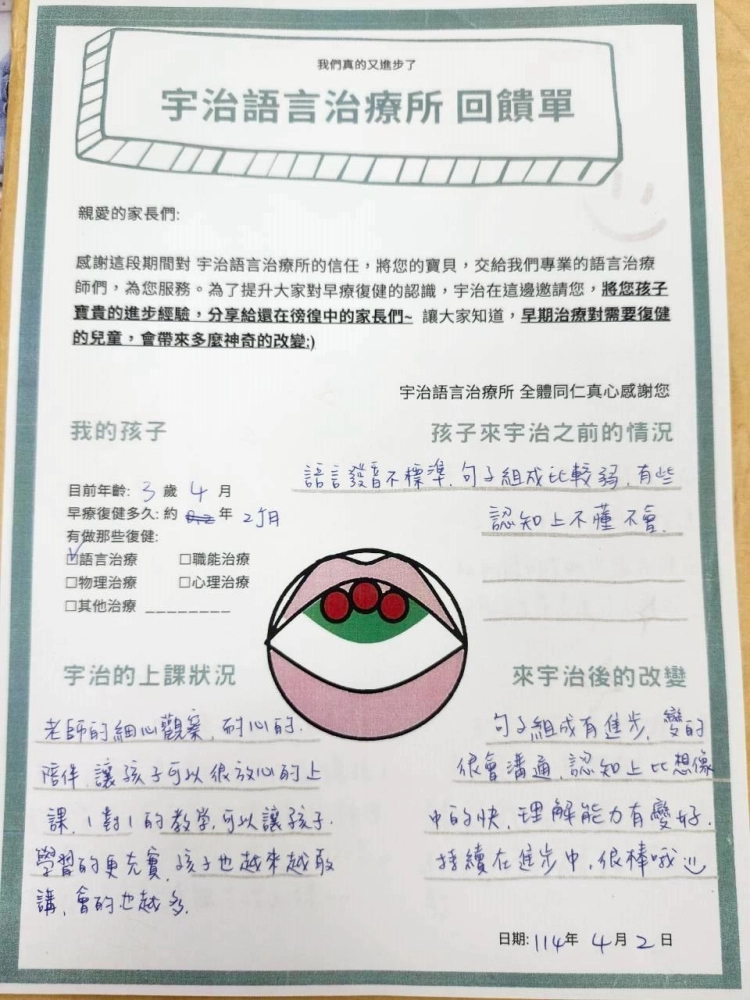 我們真的又進步了
宇治語言治療所 回饋單
親愛的家長們:
感謝這段期間對 宇治語言治療所的信任，將您的寶貝，交給我們專業的語言治療
師們，為您服務。為了提升大家對早療復健的認識，宇治在這邊邀請您，將您孩子
寶貴的進步經驗，分享給還在徬徨中的家長們~ 讓大家知道，早期治療對需要復健
的兒童，會帶來多麼神奇的改變:)
宇治語言治療所 全體同仁真心感謝您
我的孩子
目前年齡: 3 歲 4 月
早療復健多久: 約 年 2個月
有做那些復健:
☑語言治療 □職能治療
□物理治療 □心理治療
□其他治療 ________
孩子來宇治之前的情況
語言發音不標準,句子組成比較弱,有些
認知上不懂不會.
宇治的上課狀況
老師的細心觀察,耐心的.
陪伴,讓孩子可以很放心的上
課,1對1的教學,可以讓孩子.
學習的更充實,孩子也越來越敢
講,會的也越多.
來宇治後的改變
句子組成有進步,變的
很會溝通,認知上比想像
中的快,理解能力有變好.
持續在進步中,很棒哦
日期: 114年 4月 2日